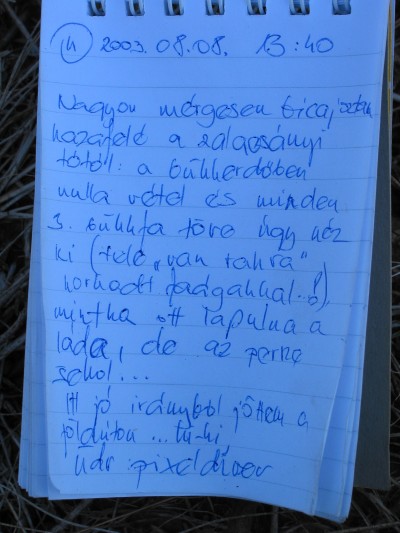 14 2003. 08. 08. 13:40
Nagyon mérgesen bicajoztam
hazafelé a zalacsányi
tótól: a bükkerdőben
nulla vétel és minden
3. bükkfa töve úgy néz
ki (tele „van rakva"
korhadt faágakkal...!),
mintha ott lapulna a
láda, de az persze
sehol...
Itt jó irányból jöttem a
földúton ...
Üdv: pixeldiver